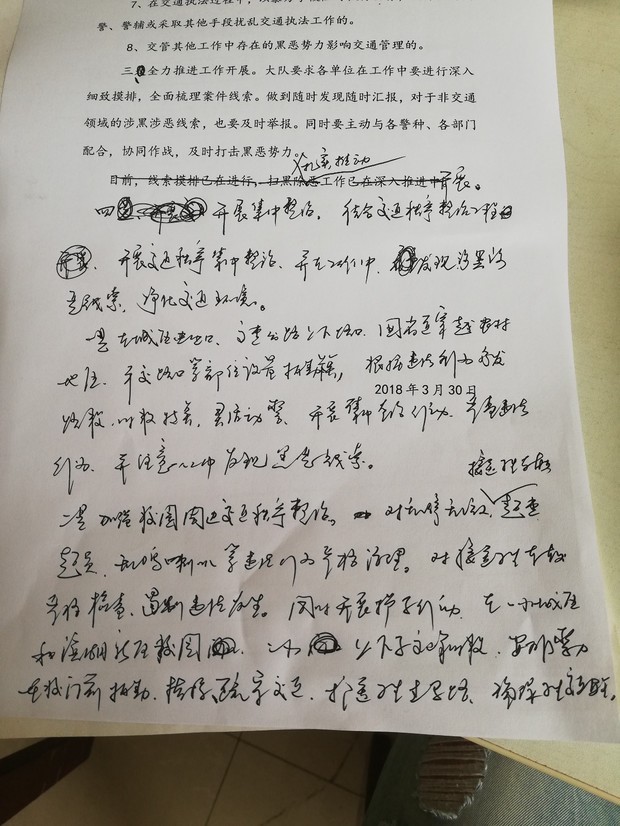 7、在交通执法过程中，
警、警辅或采取其他手段扰乱交通执法工作的。
8、交管其他工作中存在的黑恶势力影响交通管理的。
三 全力推进工作开展。大队要求各单位在工作中要进行深入
细致摸排，全面梳理案件线索。做到随时发现随时汇报，对于非交通
领域的涉黑涉恶线索，也要及时举报。同时要主动与各警种、各部门
配合，协同作战，及时打击黑恶势力。
扎实推动
目前，线索摸排已在进行，扫黑除恶工作已在深入推进中开展。
四 开展集中整治，结合交通秩序整治工程
开展交通秩序集中整治、并在工作中 发现涉黑涉
恶线索，净化交通环境。
一是在城区出口、 国省道穿越农村
地区、平交路口等部位设置 根据违法行为多发
2018年3月30日
路段、时段 灵活动警、开展集中 行动 严查违法
行为、并注意从中发现黑恶线索。
接送学生车辆
二是加强校园周边交通秩序整治。对乱停乱放、超速
超员、乱鸣喇叭等违法行为严格治理。对接送学生车辆
严格检查、遏制违法发生。同时开展护学行动，在 城区
和 新区校园
在校门前执勤、指挥疏导交通、护送学生过马路、确保学生交通安全。